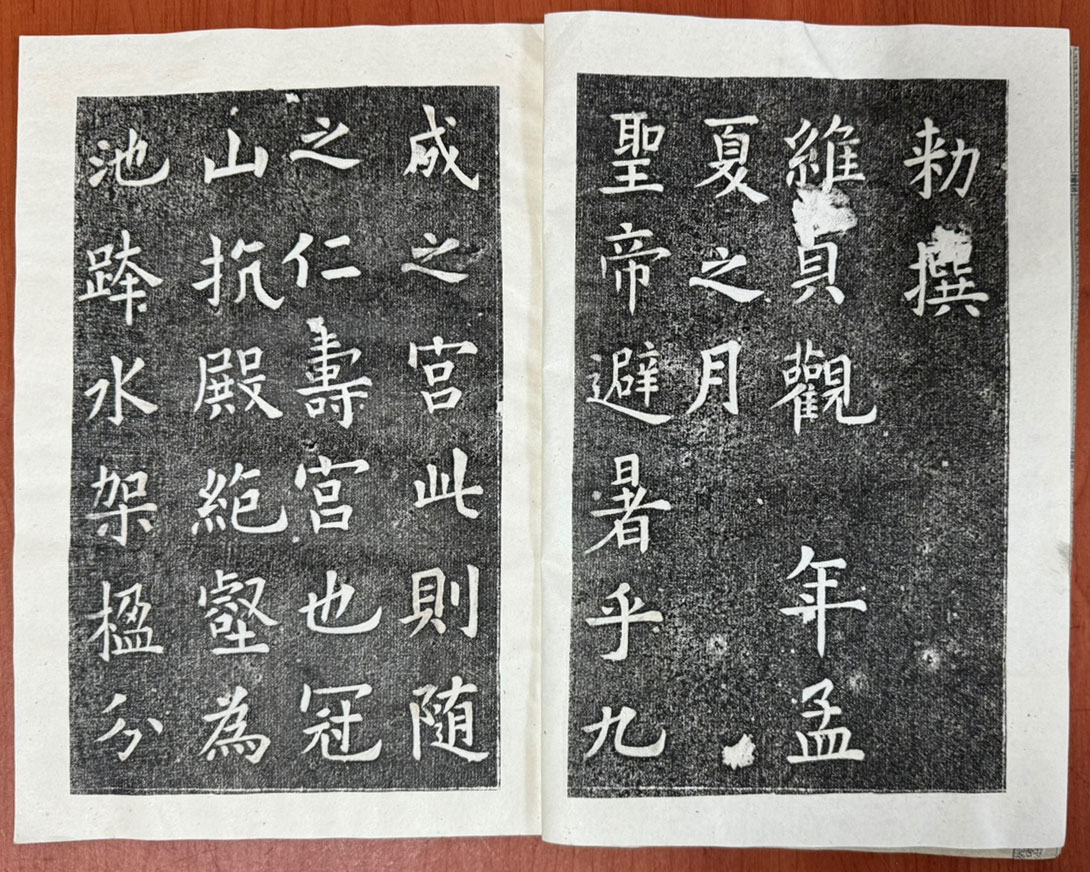 勑撰
維貞觀 年孟
夏之月
聖帝避暑乎九
成之宮此則隨
之仁壽宮也冠
山抗殿絕壑為
池跨水架楹分